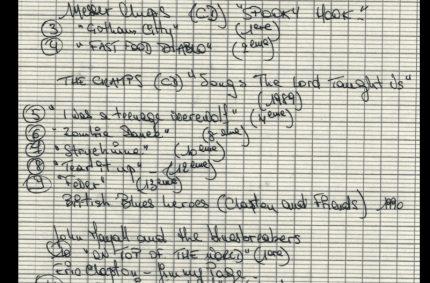 Messer Chups (CD) "SPOOKY HOOK"
③ "Gotham City" (1ere)
④ "FAST FOOD DIABLO" (2eme)
THE CRAMPS (CD) "Songs The Lord Taught Us"
(1989)
⑤ "I was a teenage werewolf" (4eme)
⑥ "Zombie Dance" (8eme)
⑦ "Strychnine" (10eme)
⑧ "Tear it up" - (12eme)
⑨ "Fever" (13eme)
British Blues heroes (Clapton and Friends) 1990
John Mayall and the Bluesbreakers
⑩ "ON TOP OF THE WORLD" (1ere)
Eric Clapton - Jimmy Page -